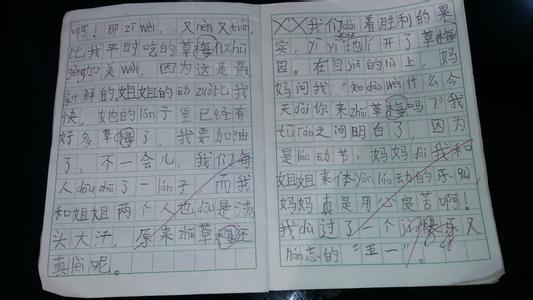 啊！那zī wèi，又nèn又tián，
比我平时吃的草梅你gèng
加美wèi，因为这是最
新鲜的姐姐的动zuò比我
快，她的lán子里已经有
好多草梅了，我要加油
了，不一会儿，我们每
人dōu zhāi了一lán子，而我
和姐姐两个人也dōu是满
头大汗，原来zhāi草梅还
真lèi呢。
我们dài着胜利的果
实，yī yī地lí开了草梅
园。在回jiā的lù上，妈
妈问我："知dào wèi什么今
天dài你来zhāi草梅吗？"我
tū rán之间明白了，因为
是láo动节，妈妈dài我和
姐姐来体yàn láo动的乐qù，
妈妈真是用心良苦啊！
我dù过了一个 快乐又
nán忘的"五一"。